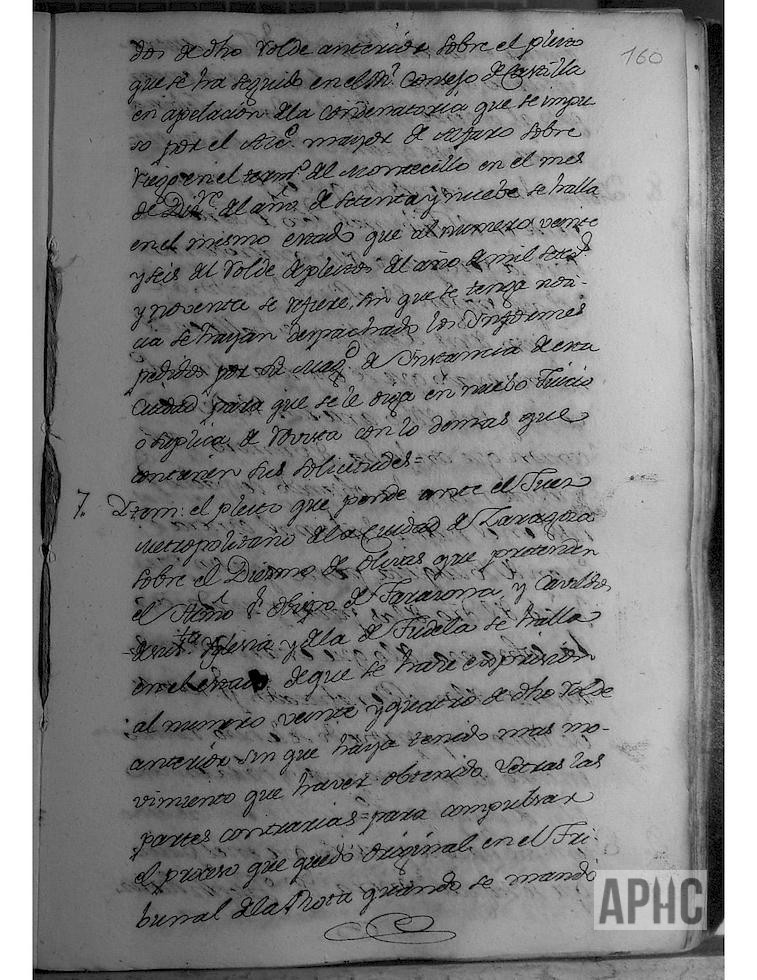 160
dos de dho Rolde anterior sobre el pleito
que se ha seguido en el Rl. Consejo de Castilla
en apelacion dela Condenatoria que se impu
so por el Alce. mayor de Alfaro sobre
riego en el termo. del Montecillo en el mes
de Dizre. del año de setenta y nuebe se halla
en el mismo estado que al numero veinte
y seis del Rolde de pleitos del año de mil setds.
y noventa se refiere, sin que se tenga noti-
cia se hayan despachado los Ynformes
pedidos por su Magd. a Ynstancia de esta
Ciudad para que se le oyga en nuebo Juicio
o suplica de Revista con lo demas que
contienen sus solicitudes=
7. Ytam: el pleito que pende ante el Juez
Metropolitano dela Ciudad de Zaragoza
sobre el Diezmo de olivas que pretenden
el Sr. Obispo de Tarazona, y Cavildos
de su sta. Yglesia y dela de Tudela se halla
en el estado de que se hace expresion
al numero veinte y quatro de dho Rolde
anterior sin que haya tenido mas mo-
vimiento que haver obtenido Letras las
partes contrarias para compulsar
el proceso que quedó original en el Tri-
bunal dela Rota quando se mandó
APHC